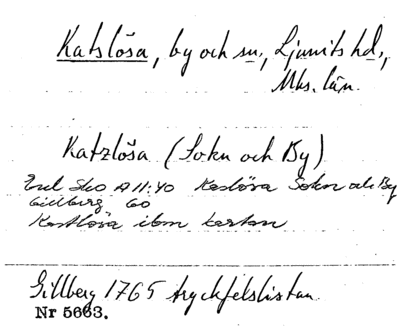 Katslösa, by och sn, Ljunits hd.,
Mhs. län.
Katzlösa (Sokn och By)
Enl Sko A 11:40 Keslöra Sokn och By
Gillberg 60
Kastlösa ibm kartan
Gillberg 1765 tryckfelslistan.
Nr 5663.